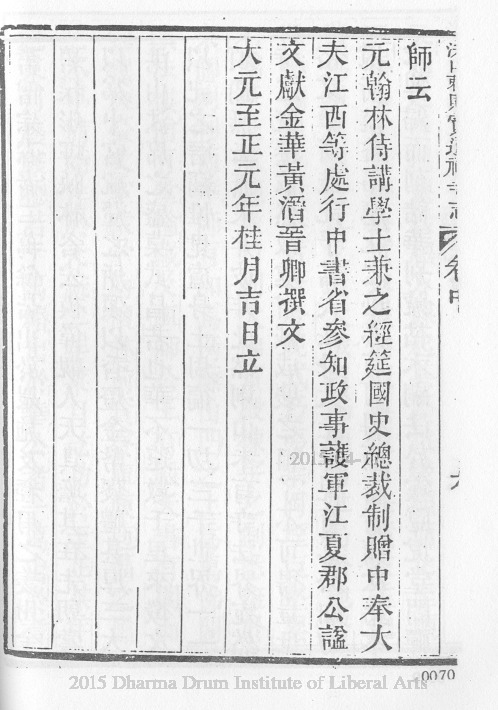 師云
元翰林侍講學士兼之經筵國史總裁制贈中奉大
夫江西等處行中書省參知政事護軍江夏郡公謚
文獻金華黃溍晉卿撰文
大元至正元年桂月吉日立
卷中
0070
2015 Dharma Drum Institute of Liberal Arts